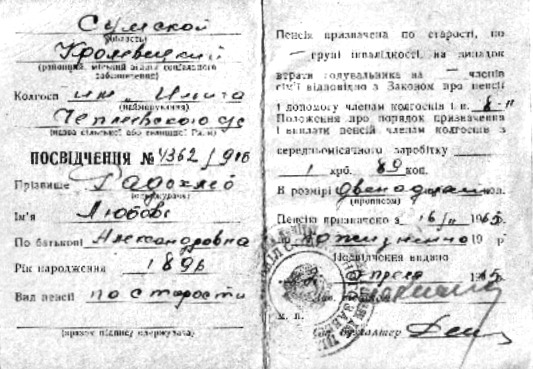 Сумской
(область)
Кролевецкий
(районний, міський відділ соціального
забезпечення)
Колгосп им. Ильича
(найменування)
(назва сільської або селищної Ради)
ПОСВІДЧЕННЯ № 4362/906
Прізвище
(одержувача)
Ім'я Любовь
По батькові Александровна
Рік народження 1896
Вид пенсії по старости
(зразок підпису одержувача)
Пенсія призначена по старості, по
— групі інвалідності, на випадок
втрати годувальника на — членів
сім'ї відповідно з Законом про пенсії
і допомогу членам колгоспів і п. 8-
Положення про порядок призначення
і виплати пенсій членам колгоспів з
середньомісячного заробітку
1 крб. 89 коп.
В розмірі двенадцать коп.
(прописом)
Пенсію призначено з 16/ 1965
по пожизненно 19 р
Посвідчення видано
1965
м. п.
бухгалтер